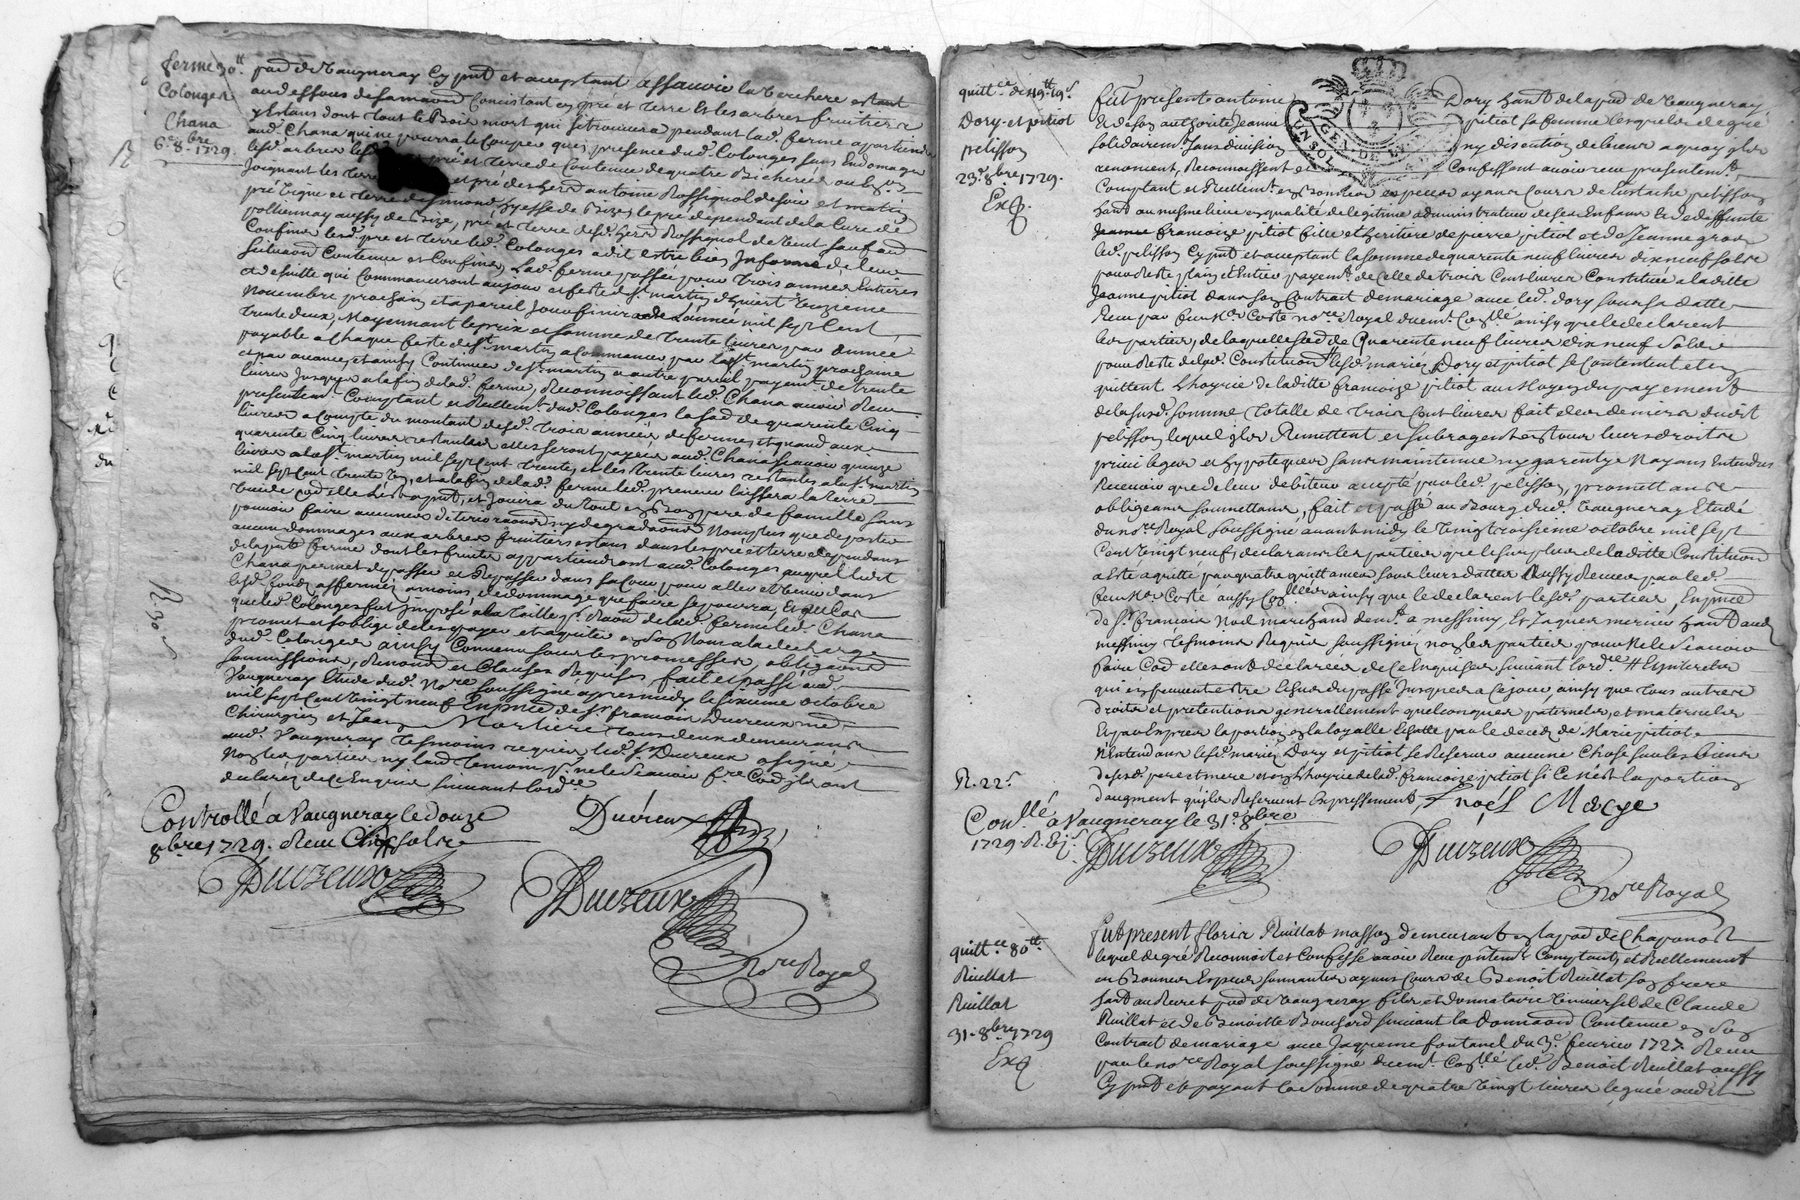 ferme 30tt
Colonges
Chana
6e 8bre 1729
pnd de Vaugneray Cy pnt et acceptant assavoir la Verchere estant
au dessous de sa maison Consistant en pré et terre Et les arbres fruitiers
y Estans dont tout le Bois mort qui se trouvera pendant lad. ferme appartiendra
aud. Chana qui ne pourra le Couper qu'en presence dud. Colonges sans Endomager
lesd. arbres pré et terre de Contenue de quatre Bicherées ou Env.
Joignant les terre et pré des herrs antoine Rossignol de soir et matin
pré Vigne et terre
pollionnay aussy de Bize, pré et terre desd. herrs Rossignol de Vent sauf aud
Confins lesd. pré et terre led. Colonges a dit estre les Informé de leur
scituaon Contenue et Confins, Lad. ferme passée pour trois années Entieres
et de suitte qui Commanceront au jour et feste de st martin d'hyvert Unzieme
Novembre prochain et a pareil Jour finir de L'année mil sept Cent
trente deux, Moyennant le prix et somme de trente livres par année
payable a Chaque feste de st martin a Commancer par la st martin prochaine
et par avance, et ainsy Continuer de st martin a autre pareil payent de trente
livres Jusques a la fin de lad. ferme, Reconnoissant led. Chana avoir Reçu
presentemt Comptant et Reellemt dud. Colonges la sad. de quarente Cinq
livres a Compte du montant desd. trois années de fermes et quand aux
quarente Cinq livres restantes elles seront payees aud. Chana scavoir quinze
livres a la st martin mil sept Cent trente, et les trente livres restantes a la st martin
mil sept Cent trente Un, et a la fin de lad. ferme led. preneur laissera la terre
Vuide Co'elle L'est a pnt, et Jouira du tout en Bon pere de famille sans
pouvoir faire aucunes deterioraons ny degradaons Non plus que de porter
aucun dommages aux arbres fruitiers estans dans les pré et terre dependans
de la pnte ferme dont les fruits appartiendront aud. Colonges auquel led.
Chana permet de passer et Repasser dans sa Cour pour aller et Venir dans
lesd. fonds affermés a moins de dommage que faire se pourra, Et au Cas
que led. Colonges fut Imposé a la taille pr Raon de lad. ferme led. Chana
promet et s'oblige de les payer et aquiter en son Nom a la decharge
dud. Colonges ainsy Convenu sous les promesses, obligaons
soumissions, Renonons et Clauses Requises, fait et passé aud.
Vaugneray Etude dud. Nore soussigné apres midy le sixieme octobre
mil sept Cent Vingt neuf En pnce de sr francois Duvreux me
Chirurgien et Jean Martiere tous deux demeurans
aud. Vaugneray temoins requis led. sr Duvreux a signé
Non les partie ny laud temoin pr ne le scavoir fre Co'd'ils ont
declarés de ce Enquis suivant lord.ce
Controllé a Vaugneray le douze
8bre 1729. Reçu Cinq sols
Duvreux
Duvzeux
Duvzeux
Nore Royal
R. 30s
quittce de 49tt 19s
Dory et pitiot
pelisson
23e 8bre 1729.
Exp.
GEN. DE LYON
UN SOL
fut presente antoine Dory hant de la pnd de Vaugneray
Et de son authorité Jeanne pitiot sa femme lesquels de gré
solidairemt sans division ny discution de biens a quoy ils
renoncent, Reconnoissent et Confessent avoir reçu presentemt
Comptant et Reellemt en Bonnes especes ayans Cours de Eustache pelisson
hant au mesme lieu en qualité de legitime administrateur de ses Enfans & de deffunte
Jeanne francoise pitiot fille et heritiere de pierre pitiot et de Jeanne gros
led. pelisson Cy pnt et acceptant la somme de quarente neuf livres dix neuf sols
pour Reste plain et Entier payemt de Celle de trois Cent livres Constituée a la ditte
Jeanne pitiot dans son Contrat de mariage avec led. dory sous sa datte
Reçu par feu Me Coste nore Royal duemt Conllé ainsy que le declarent
les parties, de laquelle sad. de Quarente neuf livres dix neuf sols
pour Reste de lad. Constitution lesd. mariés Dory et pitiot se Contentent et en
quittent L'hoyrie de laditte francoise pitiot au Moyen du payement
de la susd. somme totalle de trois Cent livres fait des deniers dudit
pelisson lequel ils Remettent et subrogent en tous leurs droits
privileges et hypoteques sans maintenue ny garentye Nayans Entendus
Recevoir que de leur debiteur accepté par led. pelisson, promettans
obligeans soumettans, fait et passé au Bourg dud. Vaugneray Etude
du nore Royal soussigné avant midy le Vingt troisieme octobre mil sept
Cent Vingt neuf, declarans les parties que le surplus de la ditte Constitution
a Esté aquitté par quatre quittances sous leurs dattes aussy Reçues par led.
feu Me Coste aussy Conllees ainsy que le declarent lesd. parties, En pnce
de sr francois Noel marchand demt a messimy Et Jaques mercier hant aud
messimy temoins Requis soussignés non les parties pour ne le scavoir
faire Co'd'elles ont declarées de ce Enquises suivant lord.ce # Et
qui en peuvent estre Echus du passé Jusques a ce jour ainsy que tous autres
droits et pretentions generallement quelconques paternels, et maternels
Et par Exprés la portion en la loyalle Echutte par le decés de Marie pitiot
N'entendans lesd. mariés Dory et pitiot se Reserver aucune Chose sur les biens
desd. pere et mere et en L'hoyrie de lad. francoise pitiot si Ce n'est la portion
d'augment qu'ils se Reservent Expressement,
f noël Mercye
R. 22s
Conllé a Vaugneray le 31e 8bre
1729 R.
Duvzeux
Duvzeux
Nore Royal
quittce 80tt
Ruillat
Ruillat
31e 8bre 1729
Exp
fut present floris Ruillat masson demeurant en la pnd de Chaponost
lequel de gré Reconnoit et Confesse avoir Reçu pntemt Comptant, et Reellement
en Bonnes Especes sonnantes ayans Cours de Benoit Ruillat son frere
hant au pnd de Vaugneray fils et donnataire Universel de Claude
Ruillat et de Benoitte Bouchard suivant la donnaon Contenue en son
Contrat de mariage avec Jaqueme fontanel du 3e fevrier 1727 Reçu
par le nore Royal soussigné duemt Conllé led. Benoit Ruillat aussy
Cy pnt et payant la somme de quatre Vingt livres leguée audit